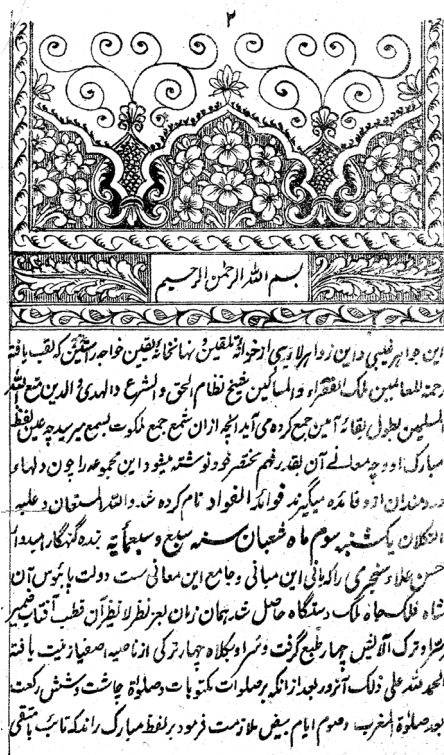 ۲
بسم الله الرحمن الرحیم
این جواهر غیبی و این زواهر لاریبی از خزانهٔ تلقین و نهانخانهٔ یقین خواجه راستین که لقب یافته
رحمة للعالمین ملک الفقراء والمساکین شیخ نظام الحق والشرع والهدی والدین متع الله
المسلمین بطول بقائه آمین جمع کرده می آید انچه ازان شمع جمع ملکوت بسمع میرسید چه عین لفظ
مبارک او و چه معانی آن بقدر فهم مختصر خود نوشته میشود و این مجموعه را چون دلهاء
دردمندان ازو فائده میگیرند فوائد الفواد نام کرده شد والله المستعان و علیه
التکلان یکشنبه سوم ماه شعبان سنه سبع و سبعمایه بنده گنهگار امیدوار
حسن علاء سنجری را که بانی این مبانی و جامع این معانی ست دولت پابوس آن
شاه فلک جاه ملک دستگاه حاصل شد همان زمان بعز نظر لانظر آن قطب آفتاب ضمیر
و ترک آلایش چهار طبع گرفت و سر او بکلاه چهار ترکی از ناصیه اصفیا زینت یافته
الحمد لله علی ذلک آنروز بعد ازانکه بر صلوات مکتوبات و صلوٰة چاشت و شش رکعت
بعد صلوٰة المغرب و صوم ایام بیض ملازمت فرمود بر لفظ مبارک راند که تائب با متقی